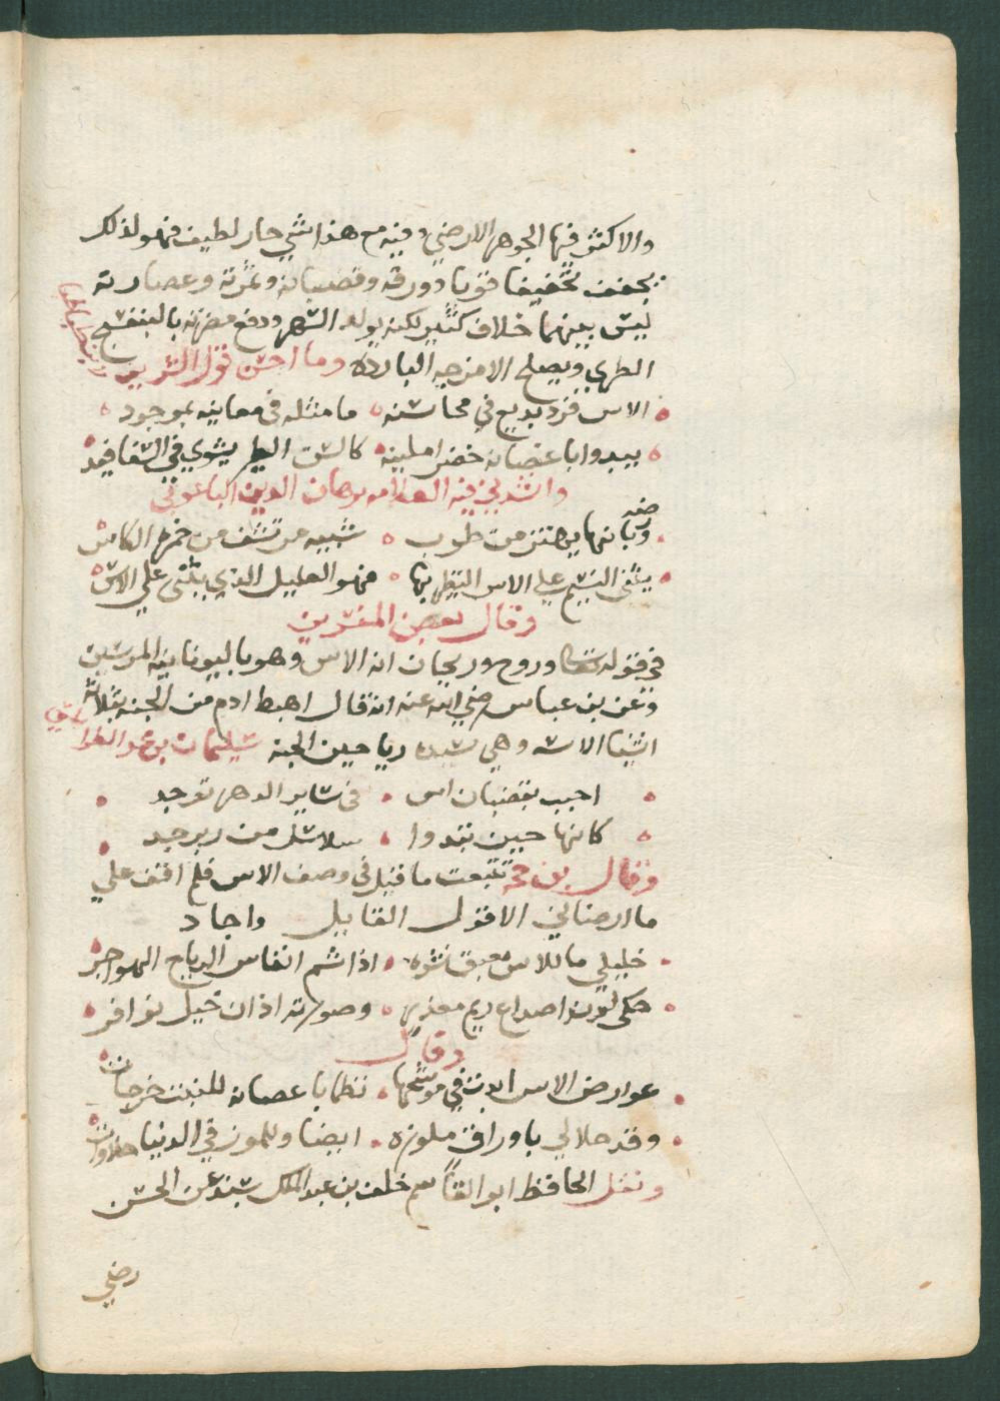 والاكثر فيها الجوهر الارضي وفيه مع هذا شي حار لطيف فهو لذلك
يجفف تخفيفا قويا وورقه وقضبانه وثمرته وعصارته
ليس بينهما خلاف كثير لكنه يولد السهر ودفع مضرته بالبنفسج
الطري ويصلح الامزجه البارده وما احسن قول
الاس فرد بديع في محاسنه ما مثله في معانيه بموجود
يبدوا باغصانه خضرا ملبنه كالست الطير يشوي في السفافيد
وانشدني فيه العلامه برهان الدين الباعوني
وبانها يهتز من طرب شبيه من تشف من خمرها الكاس
يثني النسيم علي الاس النظر بها فهو العليل الذي يثنى علي الاس
وقال بعض المفسرين
في قوله تعالى وروح وريحان انه الاس وهو باليونانيه المرسين
وعن بن عباس رضي الله عنه انه قال اهبط ادم من الجنه بثلاثة
اشيا الاسه وهي سيده رياحين الجنه سليمان بن محمد
احبب بقضبان اس في ساير الدهر توجد
كانها حين تبدوا سلاسل من زبرجد
وقال بن حجة تتبعت ما قيل في وصف الاس فلم اقف علي
ما ارضاني الا قول القايل واجاد
خليلي ما للاس يعبق نشره اذا شم انفاس الرياح الهواجر
حكى لونه اصداع ريم معذر وصورته اذان خيل نوافر
وقال
عوارض الاس ابدت في نظما باعصانه للنبت خرجات
وقد حلالي باوراق ملونه ايضا وللمون في الدنيا حلاوات
ونقل الحافظ ابو القاسم خلف بن عبد الملك بسنده عن الحسن
رضي